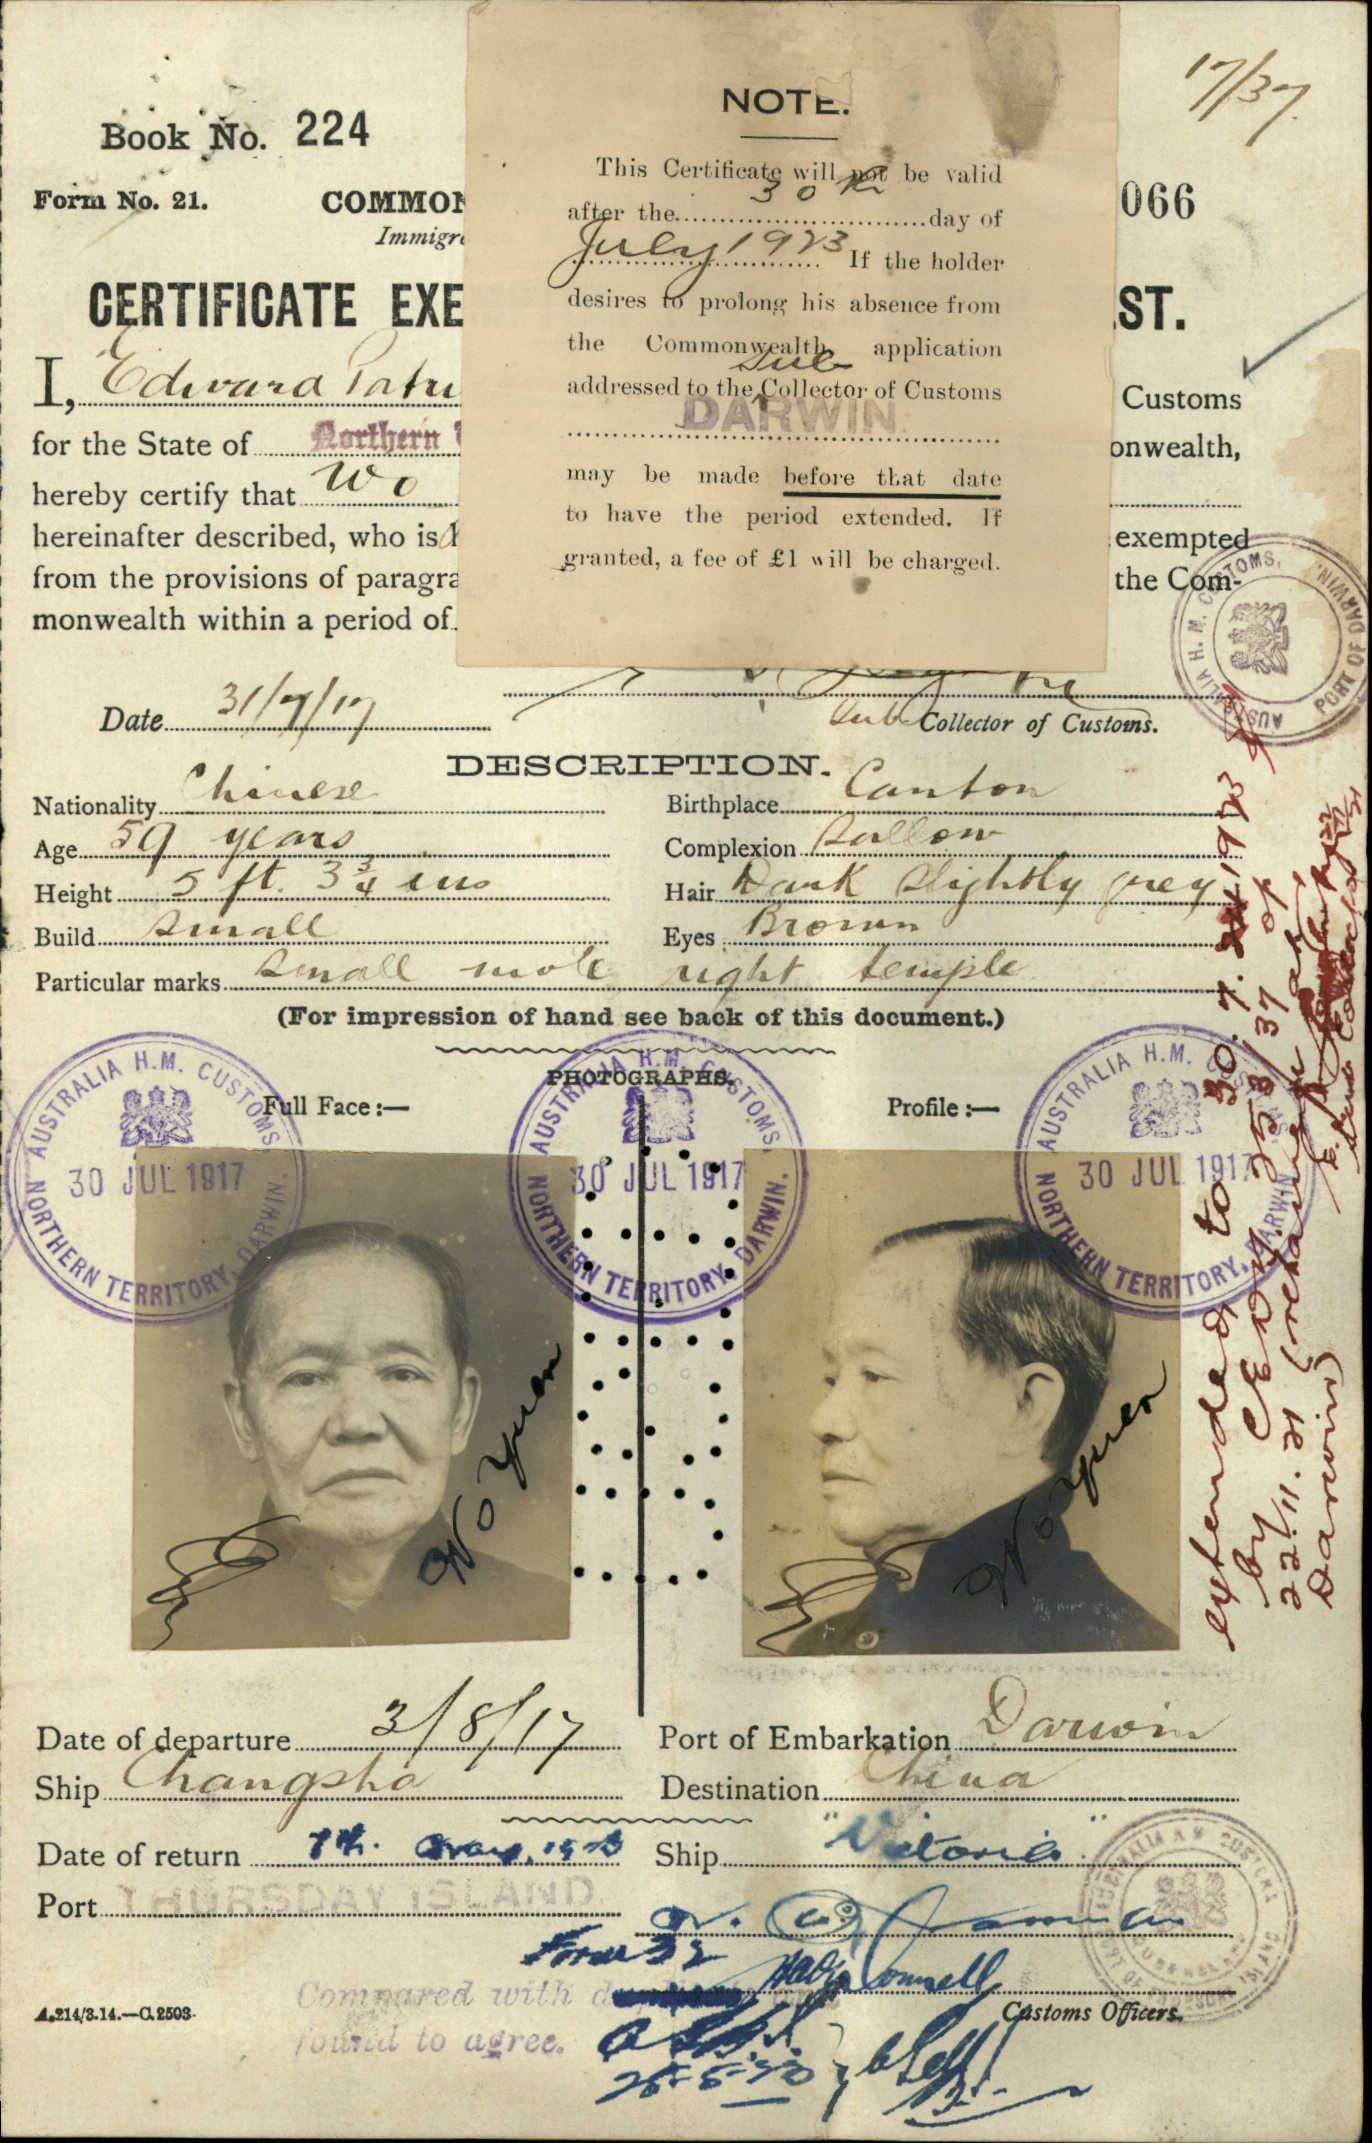 17/37.
Book No. 224
Form No. 21.
COMMON
066
Immigr
CERTIFICATE EXE
ST.
I, Edward Patri
Customs
for the State of Northern
onwealth,
hereby certify that Wo
hereinafter described, who is
exempted
from the provisions of paragra
the Com-
monwealth within a period of
NOTE.
This Certificate will not be valid
after the 30th day of
July 1923 If the holder
desires to prolong his absence from
the Commonwealth, application
addressed to the Sub Collector of Customs
DARWIN
may be made before that date
to have the period extended. If
granted, a fee of £1 will be charged.
AUSTRALIA H. M. CUSTOMS, PORT OF DARWIN.
Date 31/7/17
Sub Collector of Customs.
DESCRIPTION.
Nationality Chinese
Birthplace Canton
Age 59 years
Complexion Sallow
Height 5 ft. 3 3/4 ins
Hair Dark slightly grey
Build Small
Eyes Brown
Particular marks Small mole right temple
(For impression of hand see back of this document.)
PHOTOGRAPHS.
Full Face :—
Profile :—
AUSTRALIA H.M. CUSTOMS, NORTHERN TERRITORY, DARWIN.
30 JUL 1917
AUSTRALIA H.M. CUSTOMS, NORTHERN TERRITORY, DARWIN.
30 JUL 1917
AUSTRALIA H.M. CUSTOMS, NORTHERN TERRITORY, DARWIN.
30 JUL 1917
Wo Yuen
Wo Yuen
extended to 30.7.1923
by 253/37 of
22.11.21 (
Darwin)
Date of departure 3/8/17
Port of Embarkation Darwin
Ship Changsha
Destination China
Date of return 7th.
Ship "Victoria"
Port THURSDAY ISLAND
Form 32
Compared with
found to agree.
Customs Officers.
A.214/3.14.—C.2503.
25-5-